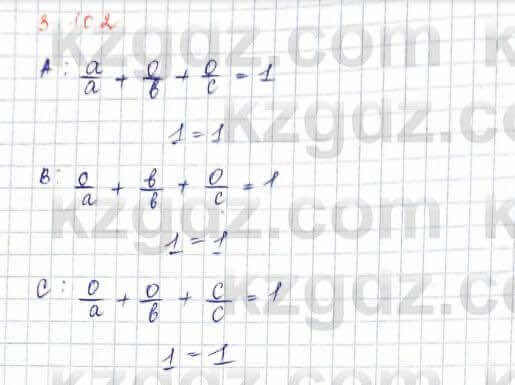 3.102
A: a/a + 0/в + 0/c = 1
1 = 1
B: 0/a + в/в + 0/c = 1
1 = 1
C: 0/a + 0/в + c/c = 1
1 = 1
kzgdz.com
kzgdz.com
kzgdz.com
kzgdz.com
kzgdz.com